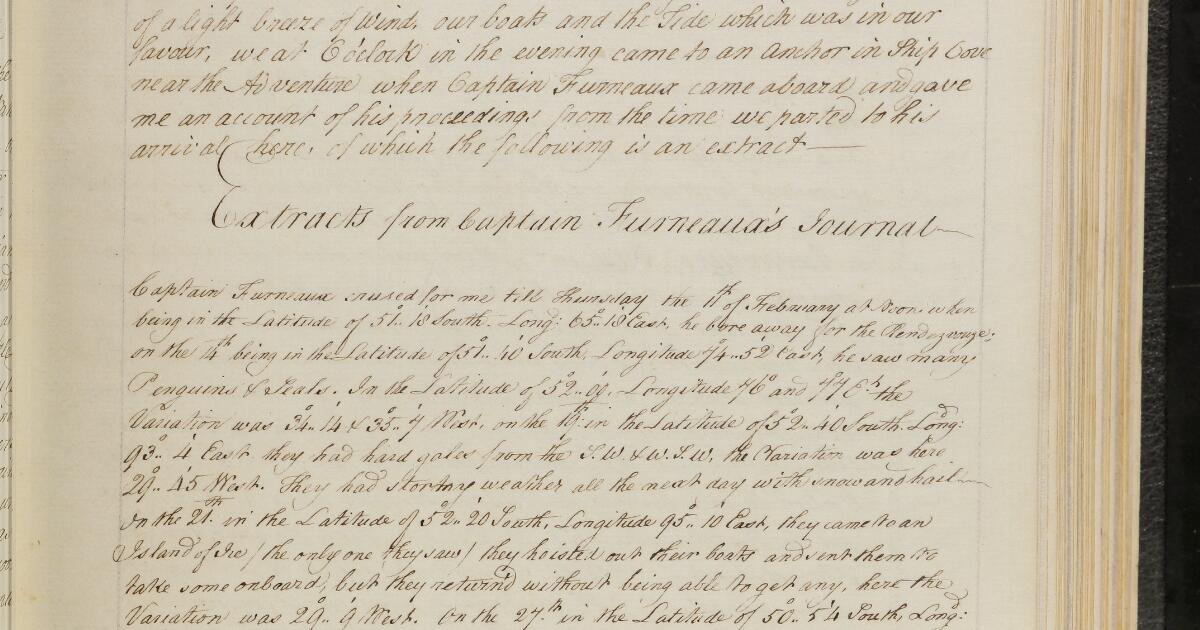 of a light breeze of Wind, our boats and the Tide which was in our
favour, we at 6 oClock in the evening came to an anchor in Ship Cove
near the Adventure when Captain Furneaux came aboard and gave
me an account of his proceedings from the time we parted to his
arrival here, of which the following is an extract —
Extracts from Captain Furneaux's Journal —
Captain Furneaux cruised for me till Thursday the 11th of February at Noon when
being in the Latitude of 51°.. 18 South. Long: 65°.. 18 East, he bore away for the Rendezvouze;
on the 14th being in the Latitude of 51°.. 40' South, Longitude 74°.. 52' East, he saw many
Penguins & Seals. In the Latitude of 52.. Longitude 76° and 77° Et the
Variation was 34°.. 14' & 35°.. 7' West, on the 19th in the Latitude of 52°.. 40 South. Long:
93°.. 4' East they had hard gales from the S.W. & W.S.W, the Variation was here
29°.. 45' West. They had stormy weather all the next day with snow and hail —
On the 21th in the Latitude of 52°.. 20' South, Longitude 95°.. 10 East, they came to an
Island of Ice / the only one they saw / they hoisted out their boats and sent them to
take some onboard, but they return'd without being able to get any, here the
Variation was 29°.. 9' West. On the 27th in the Latitude of 50°.. 54 South, Long: